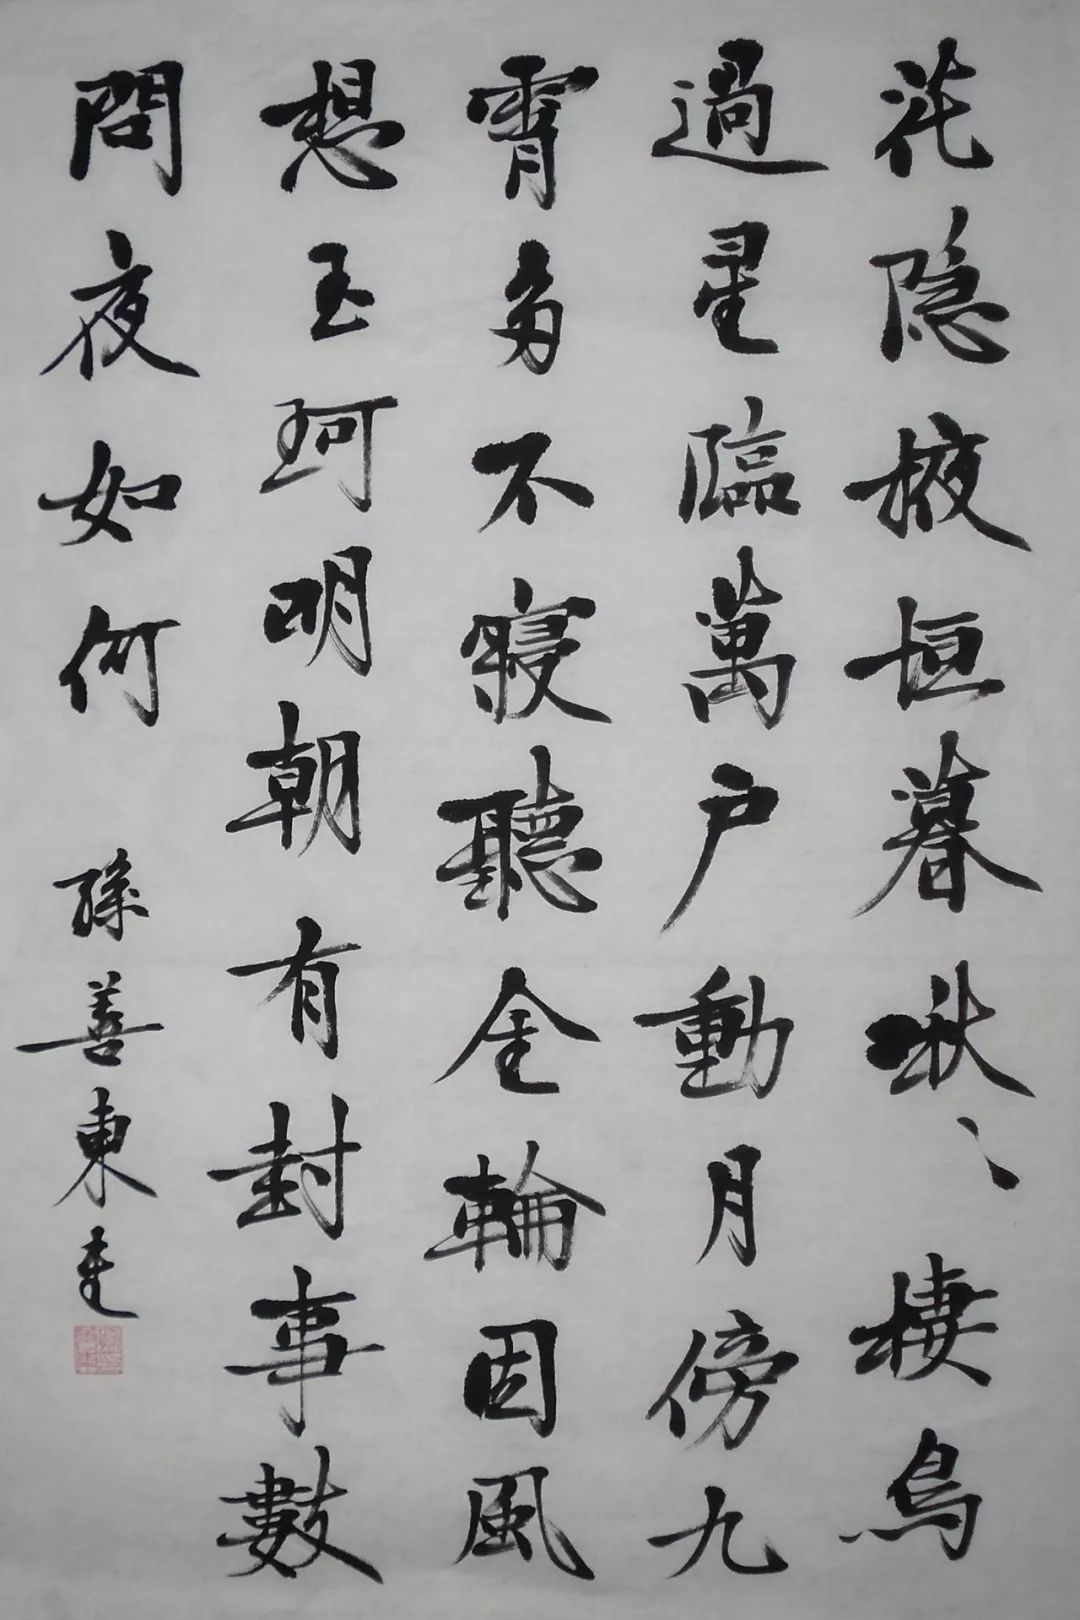 花隐掖垣暮啾〻棲鳥
過星臨萬户動月傍九
霄多不寢聽金輪因風
想玉珂明朝有封事數
問夜如何
孫善東書